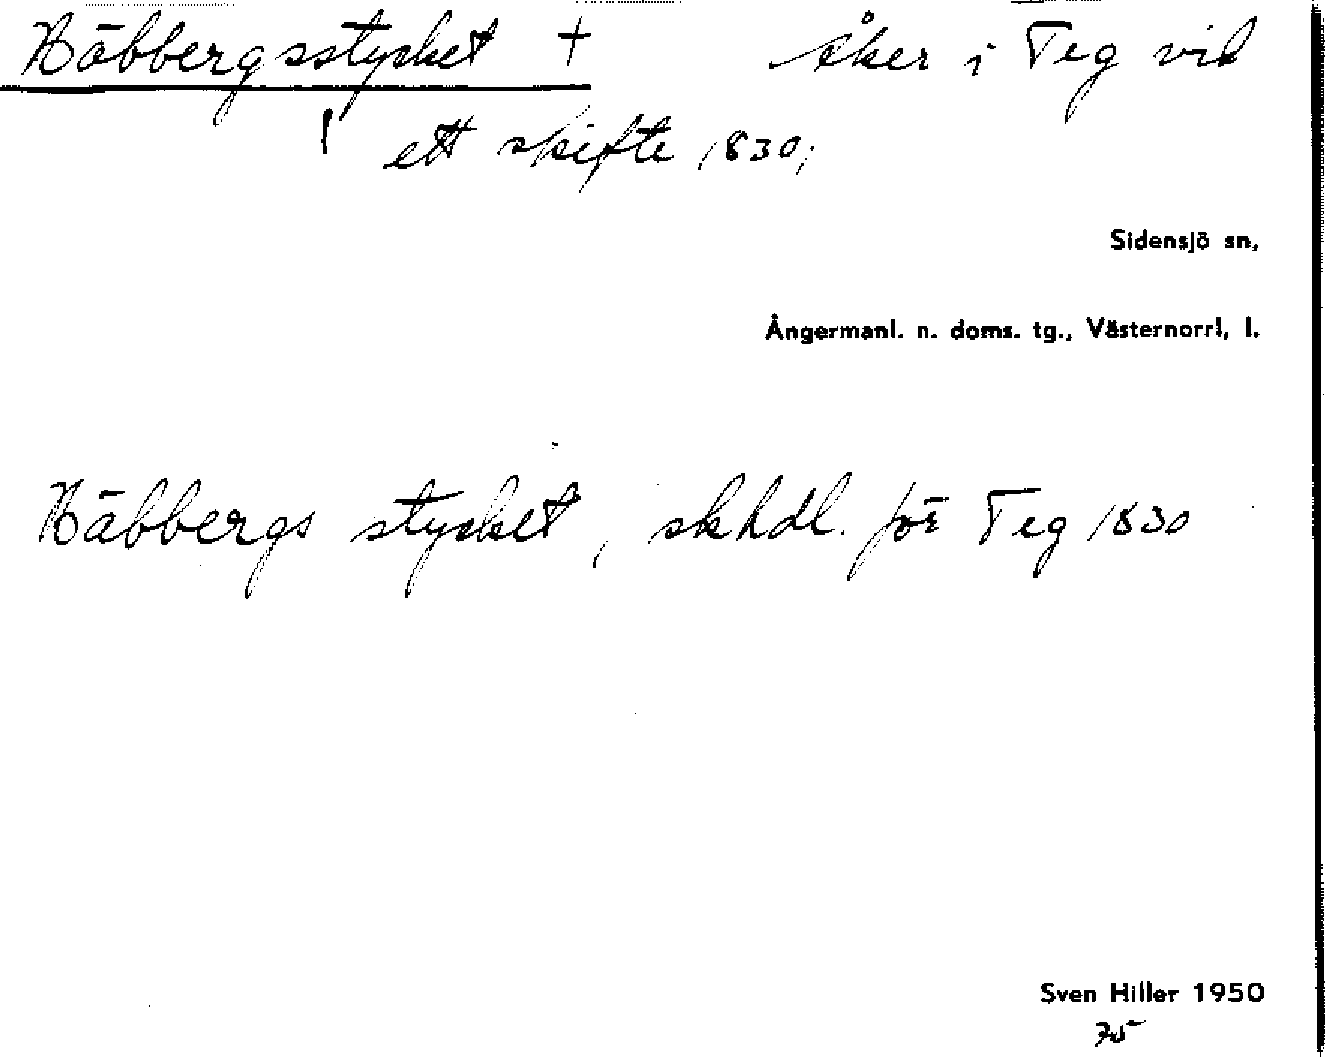 Häbbergsstycket † Åker i Teg vid
! ett skifte 1830;
Sidensjö sn,
Ångermanl. n. doms. tg., Västernorrl, l.
Häbbergs stycket, skhdl. för Teg 1830
Sven Hiller 1950